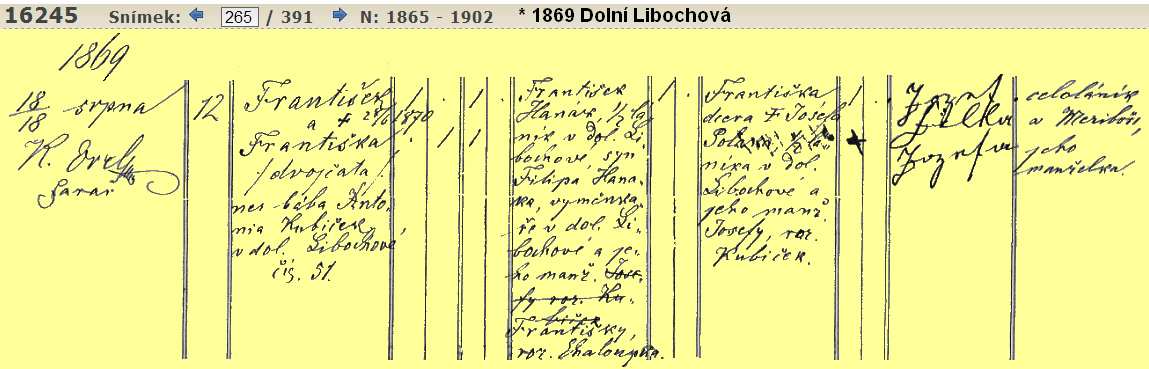 16245 Snímek: 265 / 391 N: 1865 - 1902 * 1869 Dolní Libochová
1869
18/18 srpna
farář
12
František
a
1870
Františka
/dvojčata/
nes bába Anto-
nia Kubíček,
v dol. Libochové
čís. 51.
František
Hanák, 1/2 lá-
ník v dol. Li-
bochové, syn
Filipa Hana-
ka, výměnká-
ře v dol. Li-
bochové a je-
ho manž. Jose-
fy roz. Ku-
bíček
Františky,
roz. Chaloupka.
Františka
dcera Josefa
níka v dol.
Libochové a
jeho manž.
Josefy, roz.
Kubíček.
Jozef
Jílka
Jozefa
celoláník
v Meziboří,
jeho
manželka.